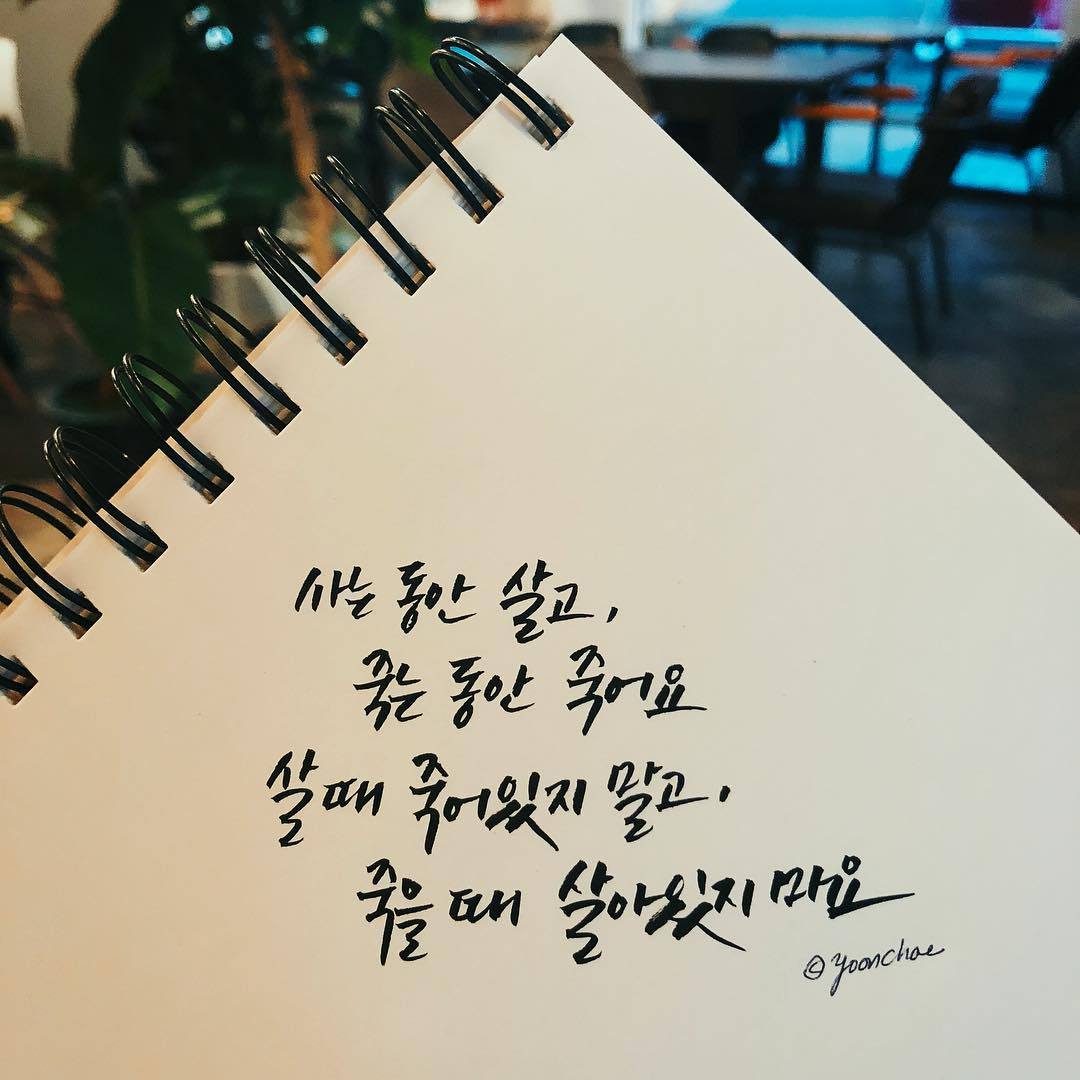 사는 동안 살고,
죽는 동안 죽어요
살 때 죽어있지 말고,
죽을 때 살아있지 마요
© yoonchae